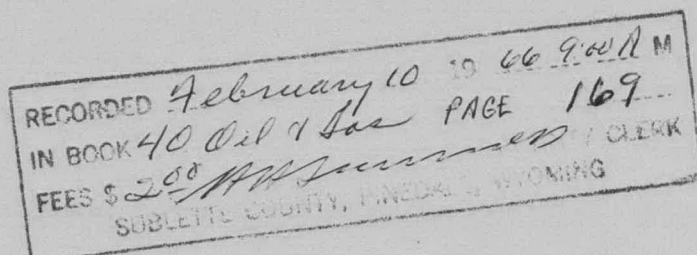 RECORDED February 10 19 66 9:00 A M
IN BOOK 40 Oil & Gas PAGE 169
FEES $ 2.00 CLERK
SUBLETTE COUNTY, PINEDALE, WYOMING